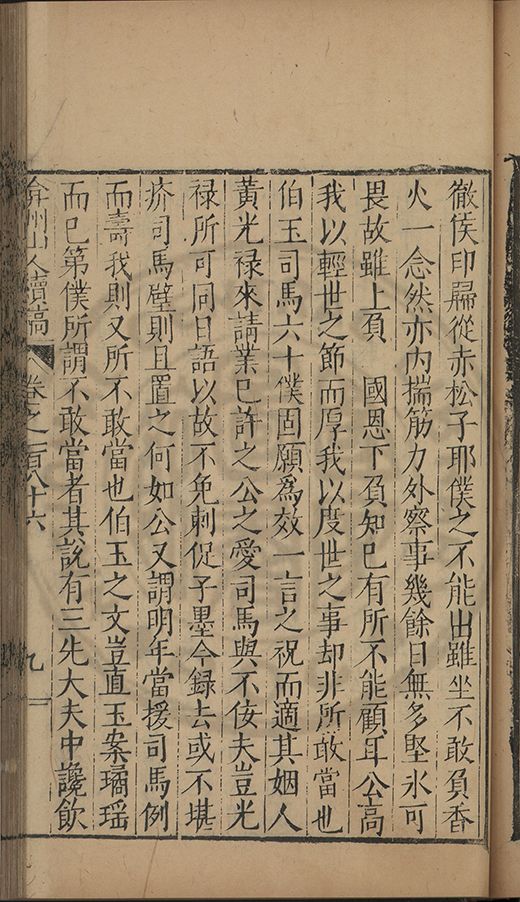 徹侯印歸從赤松子耶僕之不能出雖坐不敢負香
火一念然亦內揣筋力外察事幾餘日無多堅氷可
畏故雖上負　國恩下負知巳有所不能顧耳公高
我以輕世之節而厚我以度世之事却非所敢當也
伯玉司馬六十僕固願爲效一言之祝而適其姻人
黃光祿來請業巳許之公之愛司馬與不佞夫豈光
祿所可同日語以故不免刺促子墨今録去或不堪
疥司馬壁則且置之何如公又謂明年當援司馬例
而壽我則又所不敢當也伯玉之文豈直玉案璚瑶
而巳第僕所謂不敢當者其說有三先大夫中讒飲
弇州山人續稿　卷之一百八十六　九